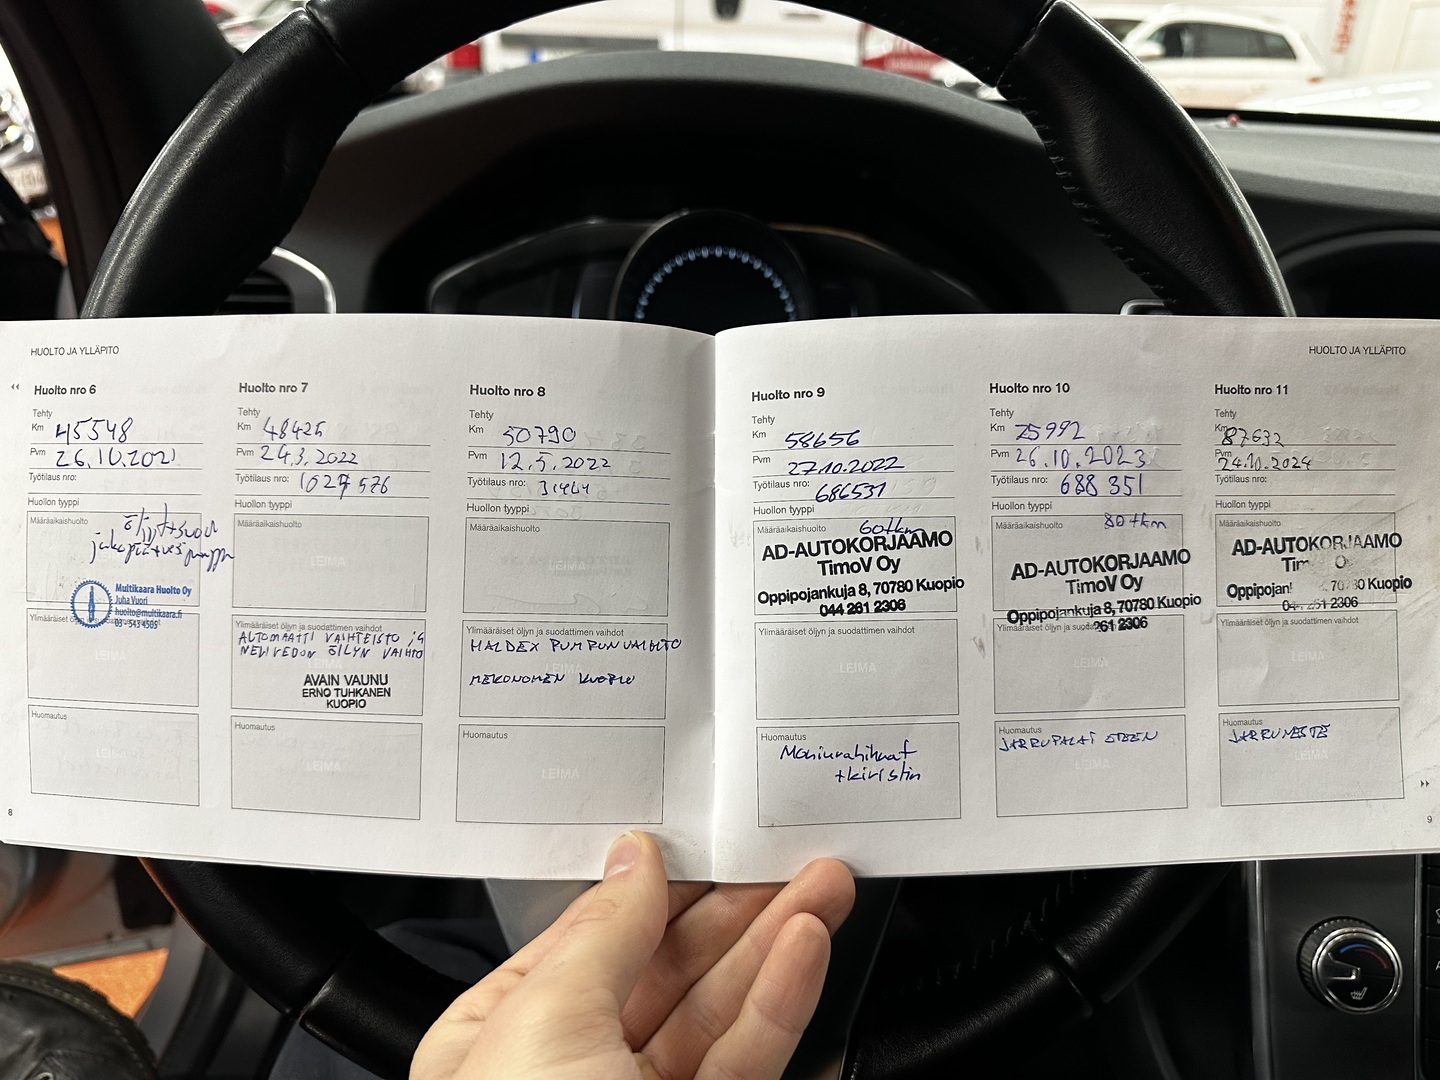 HUOLTO JA YLLÄPITO
Huolto nro 6
Tehty
Km 45548
Pvm 26.10.2021
Työtilaus nro:
Huollon tyyppi
Määräaikaishuolto
Multikaara Huolto Oy
Juha Vuori
huolto@multikaara.fi
03-5434505
Ylimääräiset öljyn ja suodattimen vaihdot
LEIMA
Huomautus
LEIMA
8
Huolto nro 7
Tehty
Km 48425
Pvm 24.3.2022
Työtilaus nro: 1027576
Huollon tyyppi
Määräaikaishuolto
LEIMA
Ylimääräiset öljyn ja suodattimen vaihdot
AUTOMAATTI VAIHTEISTO JA
NELIVEDON ÖILYN VAIHTO
AVAIN VAUNU
ERNO TUHKANEN
KUOPIO
Huomautus
LEIMA
Huolto nro 8
Tehty
Km 50790
Pvm 12.5.2022
Työtilaus nro:
Huollon tyyppi
Määräaikaishuolto
LEIMA
Ylimääräiset öljyn ja suodattimen vaihdot
HALDEX PUMPUN VAIHTO
MEKONOMEN KUOPIO
Huomautus
LEIMA
HUOLTO JA YLLÄPITO
Huolto nro 9
Tehty
Km 58656
Pvm 27.10.2022
Työtilaus nro: 686531
Huollon tyyppi
Määräaikaishuolto 60tkm
AD-AUTOKORJAAMO
TimoV Oy
Oppipojankuja 8, 70780 Kuopio
044 261 2306
Ylimääräiset öljyn ja suodattimen vaihdot
LEIMA
Huomautus
Moniurahihnat
+kiristin
Huolto nro 10
Tehty
Km 75992
Pvm 26.10.2023
Työtilaus nro: 688 351
Huollon tyyppi
Määräaikaishuolto 80tkm
AD-AUTOKORJAAMO
TimoV Oy
Oppipojankuja 8, 70780 Kuopio
261 2306
Ylimääräiset öljyn ja suodattimen vaihdot
LEIMA
Huomautus
JARRUPALAT ETEEN
LEIMA
Huolto nro 11
Tehty
Km 87632
Pvm 24.10.2024
Työtilaus nro:
Huollon tyyppi
Määräaikaishuolto
AD-AUTOKORJAAMO
70780 Kuopio
2306
Ylimääräiset öljyn ja suodattimen vaihdot
LEIMA
Huomautus
JARRUNESTE
9